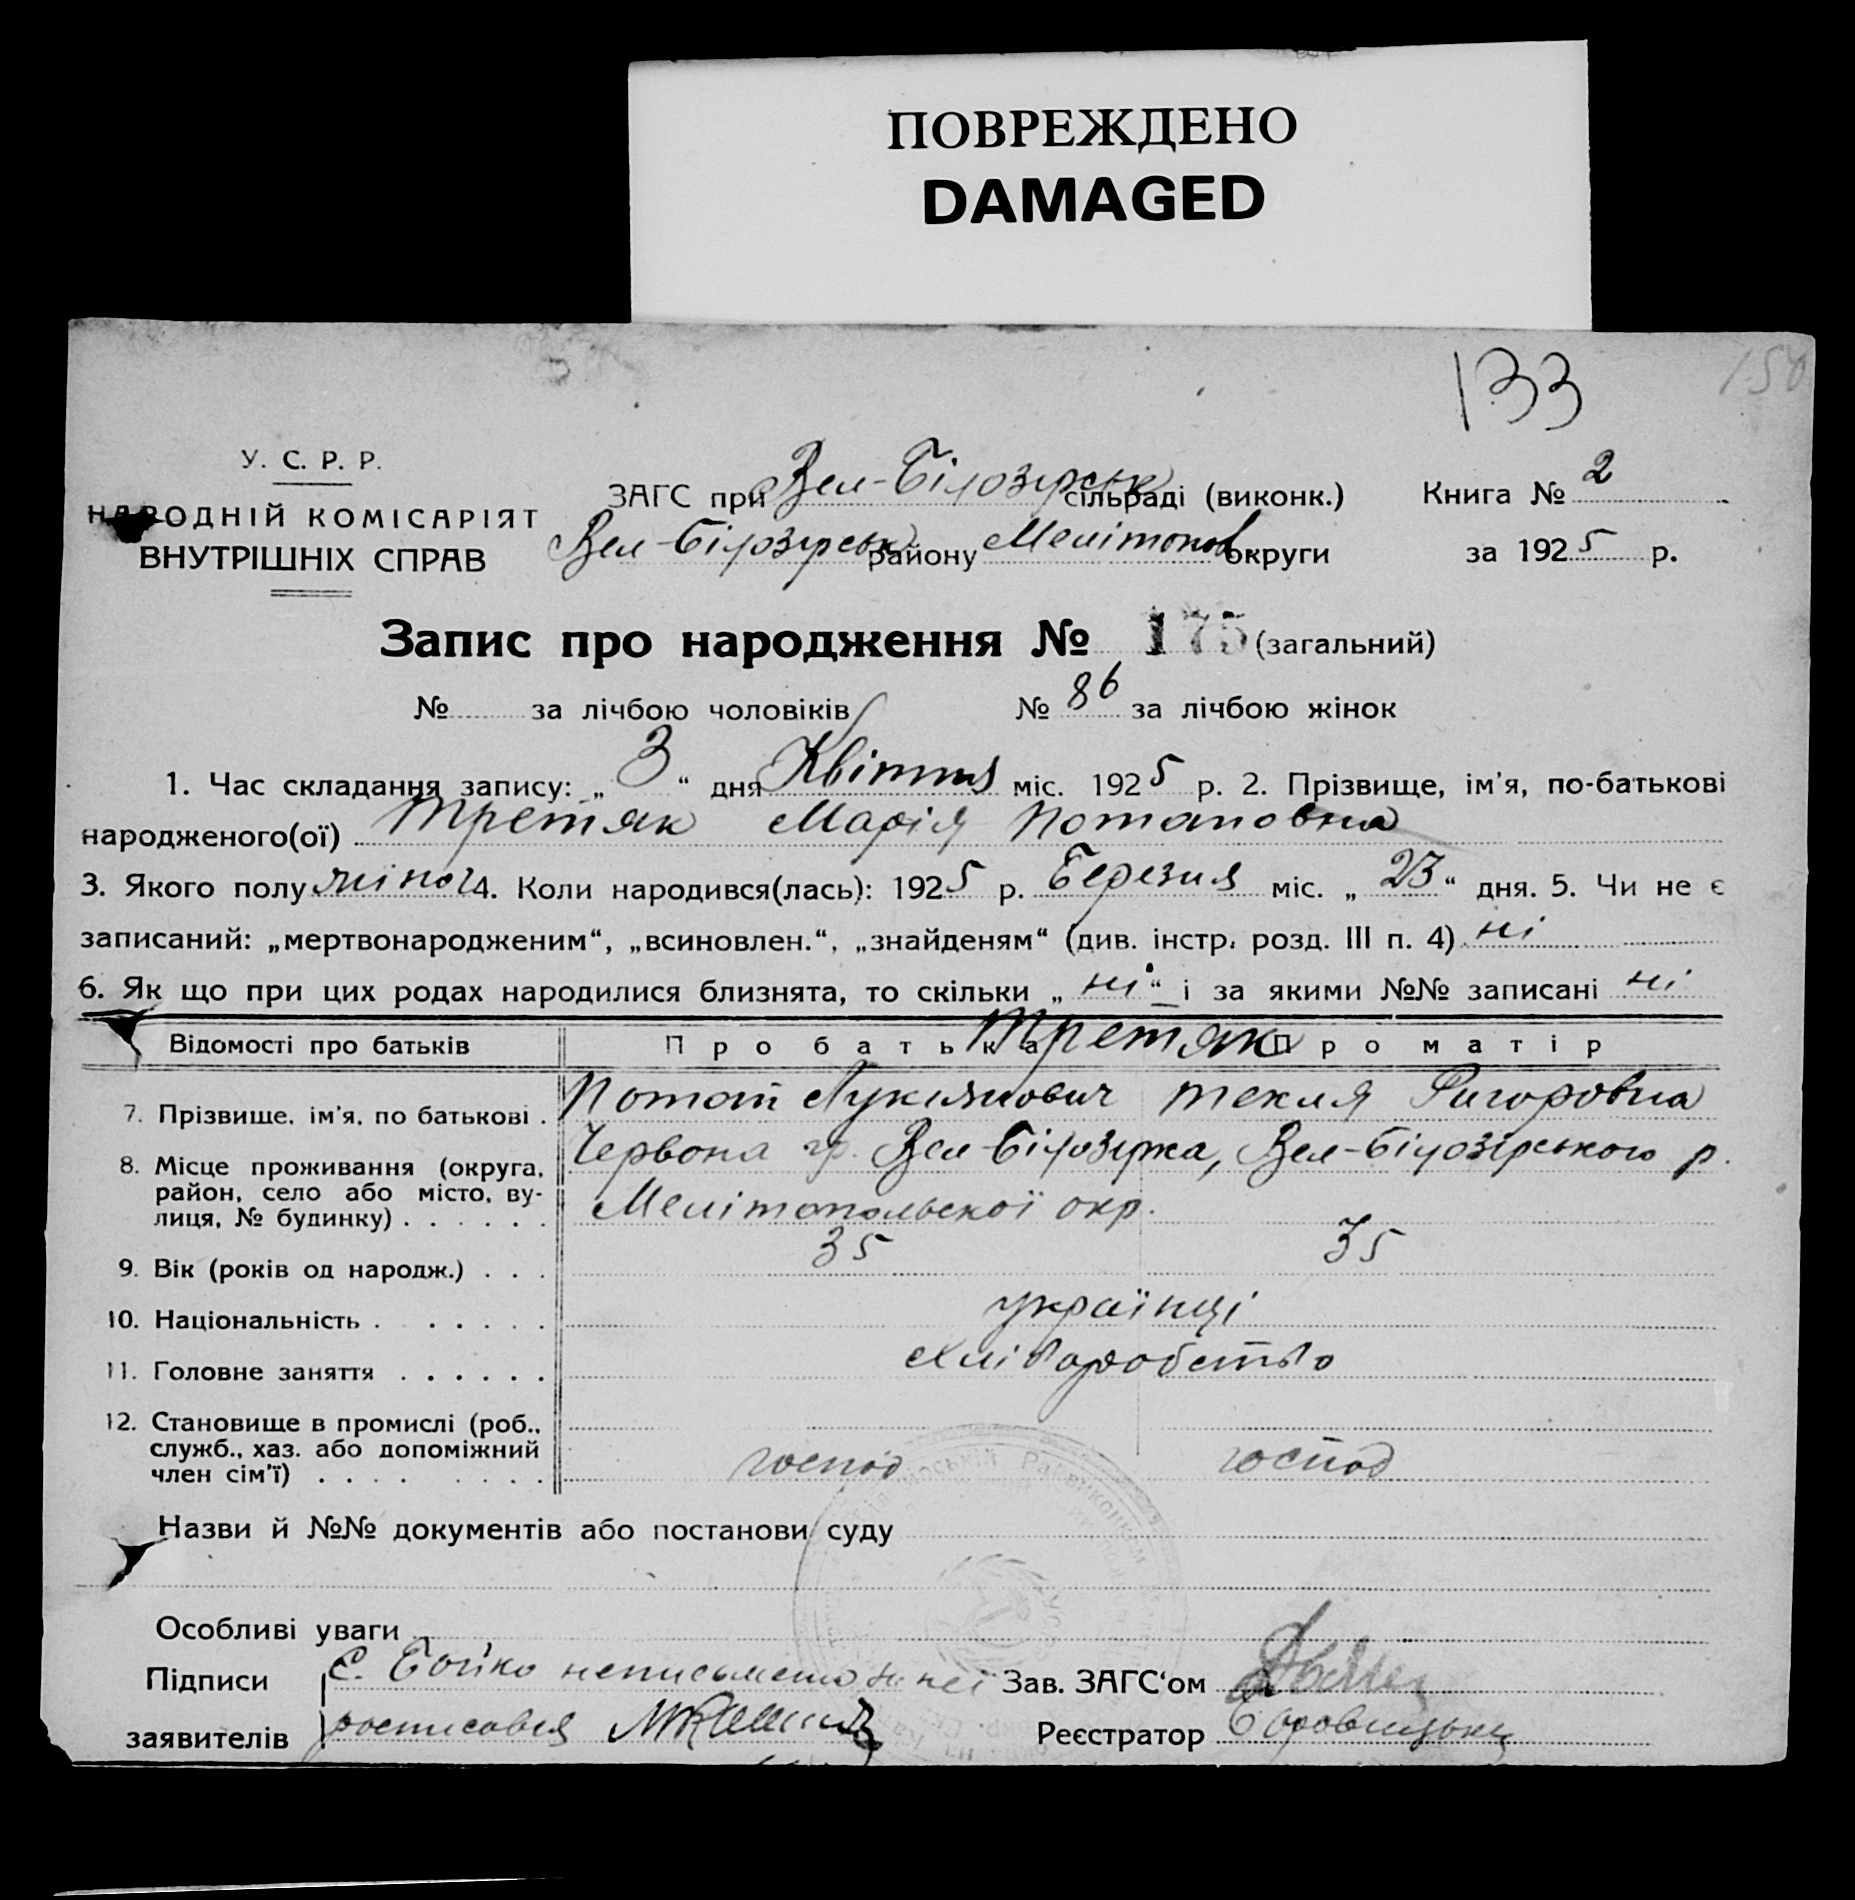 ПОВРЕЖДЕНО
DAMAGED
133
150
У. С. Р. Р.
НАРОДНІЙ КОМІСАРІЯТ
ВНУТРІШНІХ СПРАВ
ЗАГС при Вел-Білозірськ сільраді (виконк.)
Вел-Білозірськ району Мелітопов. округи
Книга № 2
за 1925 р.
Запис про народження № 175 (загальний)
№ за лічбою чоловіків № 86 за лічбою жінок
1. Час складання запису: „3“ дня Квітня міс. 1925 р. 2. Прізвище, ім'я, по-батькові
народженого(ої) Третяк Марія Потаповна
3. Якого полу жіноч 4. Коли народився(лась): 1925 р. Березня міс. „23“ дня. 5. Чи не є
записаний: „мертвонародженим“, „всиновлен.“, „знайденям“ (див. інстр. розд. III п. 4) ні
6. Як що при цих родах народилися близнята, то скільки „ні“ і за якими №№ записані ні
Відомості про батьків Про батька Третяк Про матір
7. Прізвище, ім'я, по батькові . Потап Лукіянович Текля Григоровна
8. Місце проживання (округа, Червона гр. Вел-Білозірка, Вел-Білозірського р.
район, село або місто, ву-
лиця, № будинку) . . . . . . Мелітопольскої окр.
9. Вік (років од народж.) . . . 35 35
10. Національність . . . . . . українці
11. Головне заняття . . . . . . хліборобство
12. Становище в промислі (роб.,
служб., хаз. або допоміжний
член сім'ї) . . . . . . . . господ господ
Назви й №№ документів або постанови суду
Особливі уваги
Підписи Є. Бойко неписьмена за неї Зав. ЗАГС'ом
заявителів росписався Реєстратор Боровицький